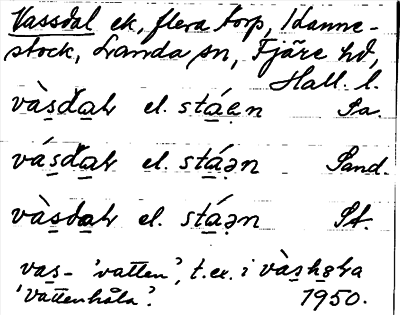 Vassdal ek, flera torp, Idanne-
stock, Landa sn, Fjäre hd,
Hall. l.
vàs̱da̱ɫ el. stá̱ən Sa.
vás̱da̱ɫ el. stá̱ən Sand.
vàs̱da̱ɫ el. stá̱ən St.
vas̱- 'vatten', t.ex. i vàs̱ho̱ɫa
'vattenhåla'. 1950.